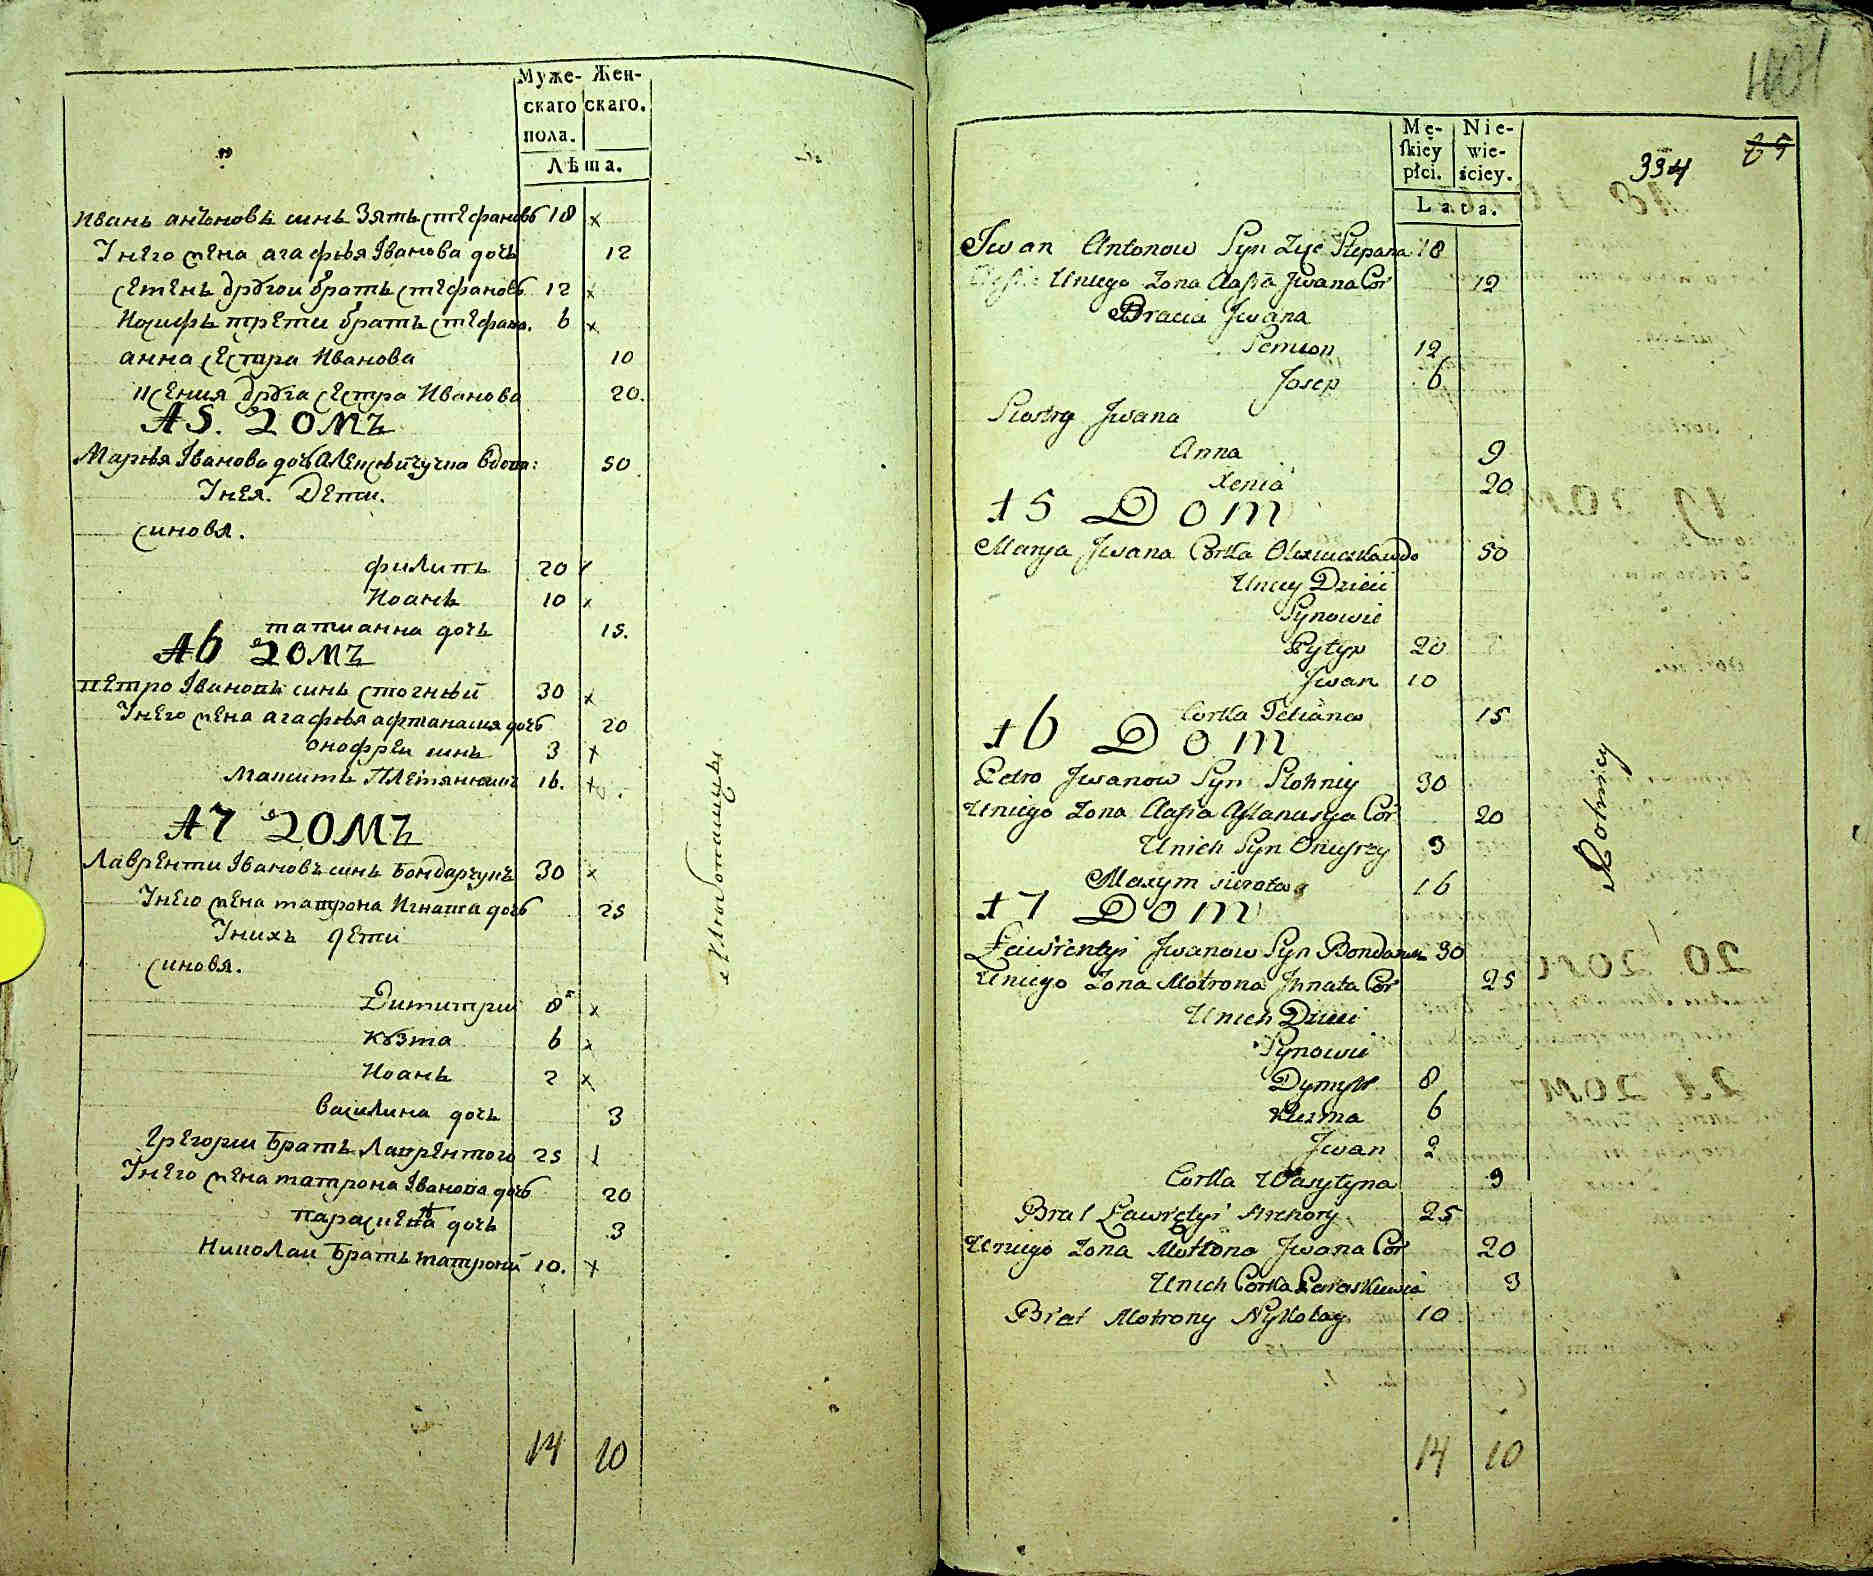 Муже- Жен-
скаго скаго.
пола.
Лѣта.
Иванъ анъновъ синъ Зять стефановъ 18 x
Унего жена агафия Іванова дочь 12
семенъ другои братъ стефановъ 12 x
Иосифъ трети братъ стефано. 6 x
анна сестра Иванова 10
ксения друга сестра Иванова 20.
15. Домъ
Мария Іванова дочь вдова: 50
Унея. Дети.
синовя.
филипъ 20
Иоанъ 10 x
татианна дочь 15.
16 Домъ
петро Івановъ синъ стогний 30 x
Унего жена агафия афтанасия дочь 20
онофреи синъ 3 x
Максимъ 16. x
17 Домъ
Лавренти Івановъ синъ Бондарчукъ 30 x
Унего жена матрона Игната дочь 25
Унихъ дети
синовя.
Димитрии 8 x
кузма 6 x
Иоанъ 2 x
василина дочь 3
Грегории братъ Лаврентого 25
Унего жена матрона Іванова дочь 20
параскева дочь 3
Николаи братъ матрони 10. x
14 10
Mę- Nie-
skiey wie-
płci. ściey.
Lata.
334
65
Jwan Antonow Syn Zyć Stepana 18
Uniego Zona Aafia Jwana Cor 12
Bracia Jwana
Semion 12
Josep 6
Siostry Jwana
Anna 9
Xenia 20
15 Dom
Marya Jwana Corka 50
Uniey Dzieci
Synowie
Pylyp 20
Jwan 10
Corka Tetiana 15
16 Dom
Petro Jwanow Syn Stohniy 30
Uniego Zona Aafia Aftanasya Cor 20
Unich Syn Onufrzy 3
Maxym sierota 16
17 Dom
Ławrentyi Jwanow Syn 30
Uniego Zona Motrona Jhnata Cor 25
Unich Dzieci
Synowie
Dymytr 8
Kuzma 6
Jwan 2
Corka Wasylyna 3
Brat Ławrętyi Hrehory 25
Uniego Zona Motrona Jwana Cor 20
Unich Corka Paraskiewia 3
Brat Motrony Nykołay 10
Rolnicy
14 10